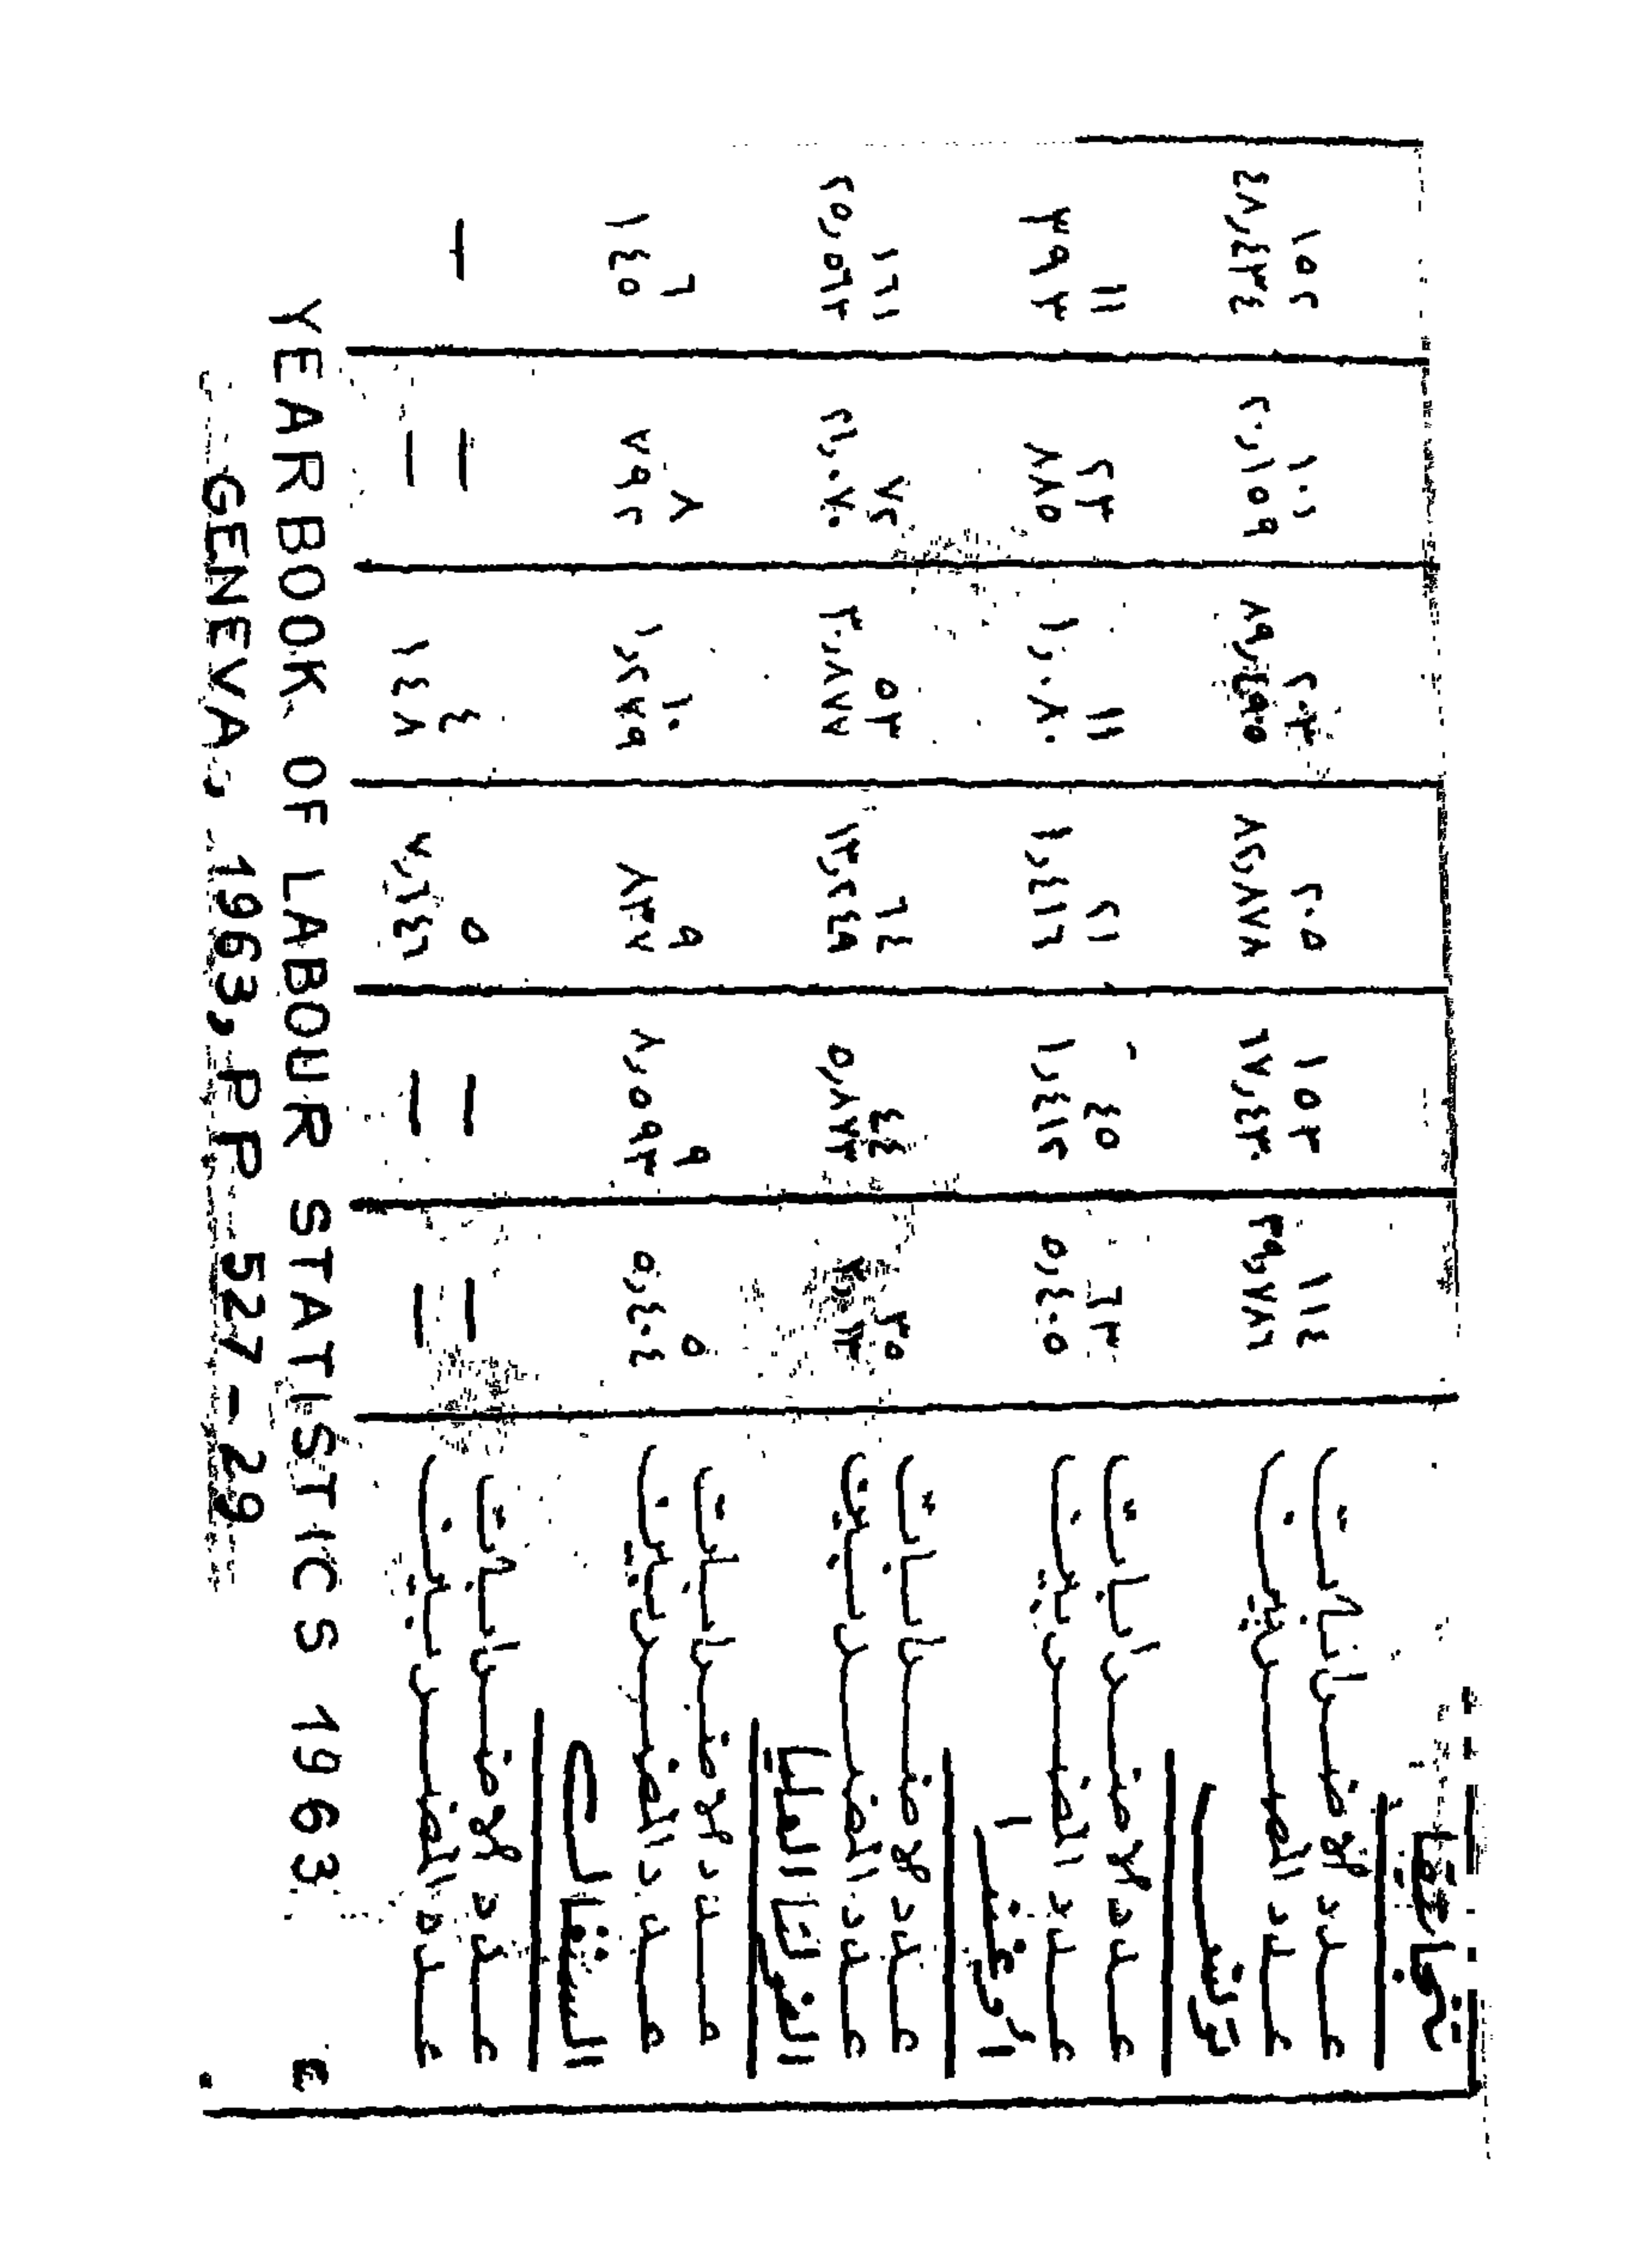 تنجانيقا
عدد الاضرابات ١١٤ ١٥٣ ٢٠٥ ٢٠٣ ١٠١ ١٥٢
عدد المضربين ٣٩,٧٨٦ ٦٧,٤٣٠ ٨٢,٨٧٨ ٢٠,١٥٩ ٤٨,٤٣٤
تونس
عدد الاضرابات ٦٣ ٤٥ ٢١ ١١ ٢٣ ١١
عدد المضربين ٥,٤٠٥ ١,٤١٢ ١,٤١٦ ١,٠٨٠ ٨٨٥ ٣٩٣
اوغندا
عدد الاضرابات ٣٥ ٤٤ ٦٤ ٥٣ ٧٢ ١٦١
عدد المضربين ٥,٨٧٣ ١٣,٢٤٩ ٣٠,٨٧٧ ٢١,٠٧٠ ٢٥,٥٦٣
الفولتا العليا
عدد الاضرابات ٥ ٩ ٩ ١٠ ٨ ٦
عدد المضربين ٥,٤٠٤ ٨,٥٩٣ ٨٣٧ ١,٢٧٩ ٧٩٢ ١٤٥
السنغال
عدد الاضرابات — — ٥ ٤ — —
عدد المضربين — — ٧,٦٤٦ ١٤٨ —
YEARBOOK OF LABOUR STATISTICS 1963
GENEVA, 1963, PP 527-29